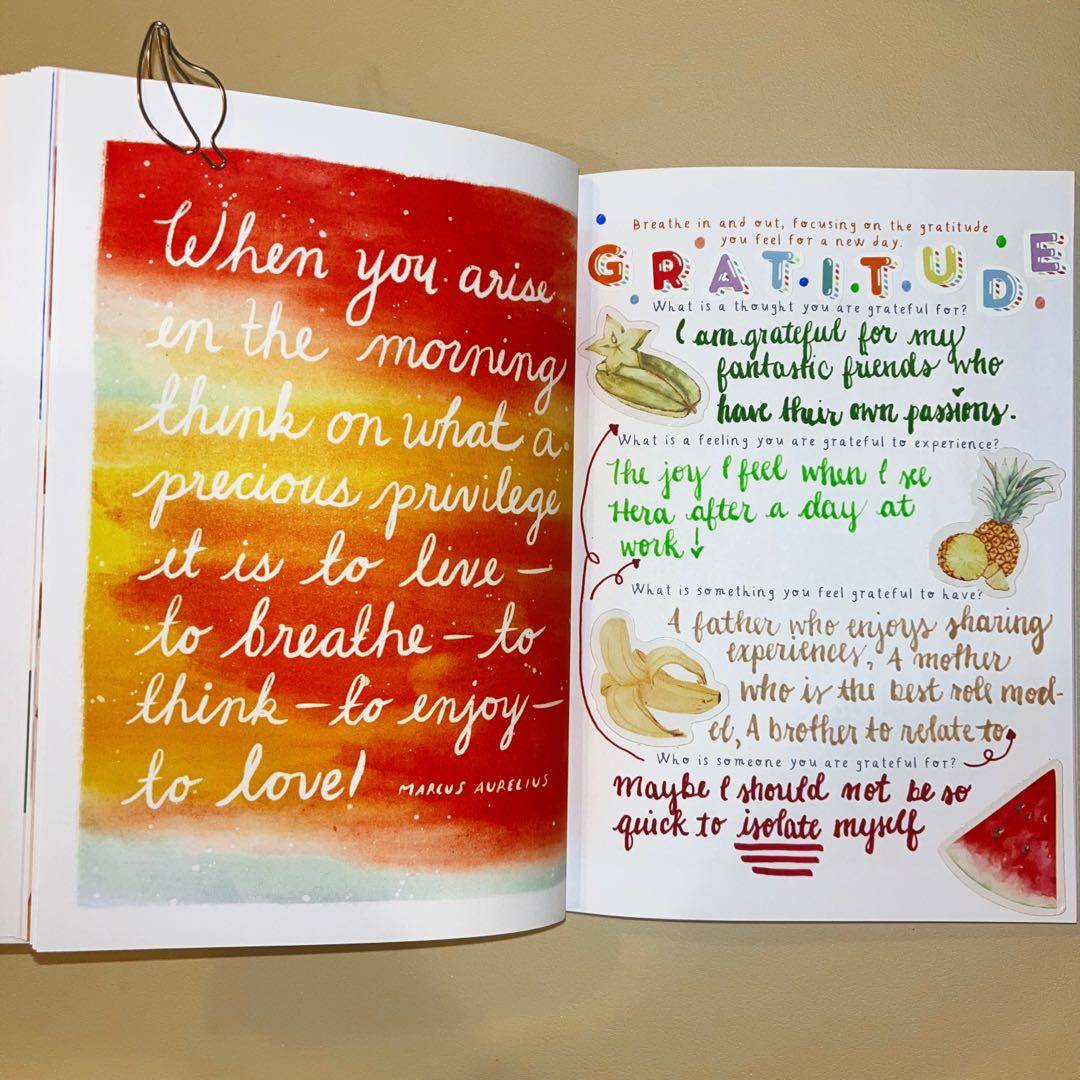 When you arise
in the morning
think on what a
precious privilege
it is to live—
to breathe—to
think—to enjoy—
to love!
MARCUS AURELIUS
Breathe in and out, focusing on the gratitude
you feel for a new day.
G R A T I T U D E
What is a thought you are grateful for?
I am grateful for my
fantastic friends who
have their own passions.
What is a feeling you are grateful to experience?
The joy I feel when I see
Hera after a day at
work!
What is something you feel grateful to have?
A father who enjoys sharing
experiences, A mother
who is the best role mod-
el, A brother to relate to
Who is someone you are grateful for?
Maybe I should not be so
quick to isolate myself